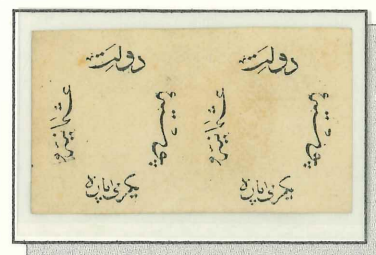 دولت
عثمانیه
یکرمی پاره
دولت
عثمانیه
یکرمی پاره